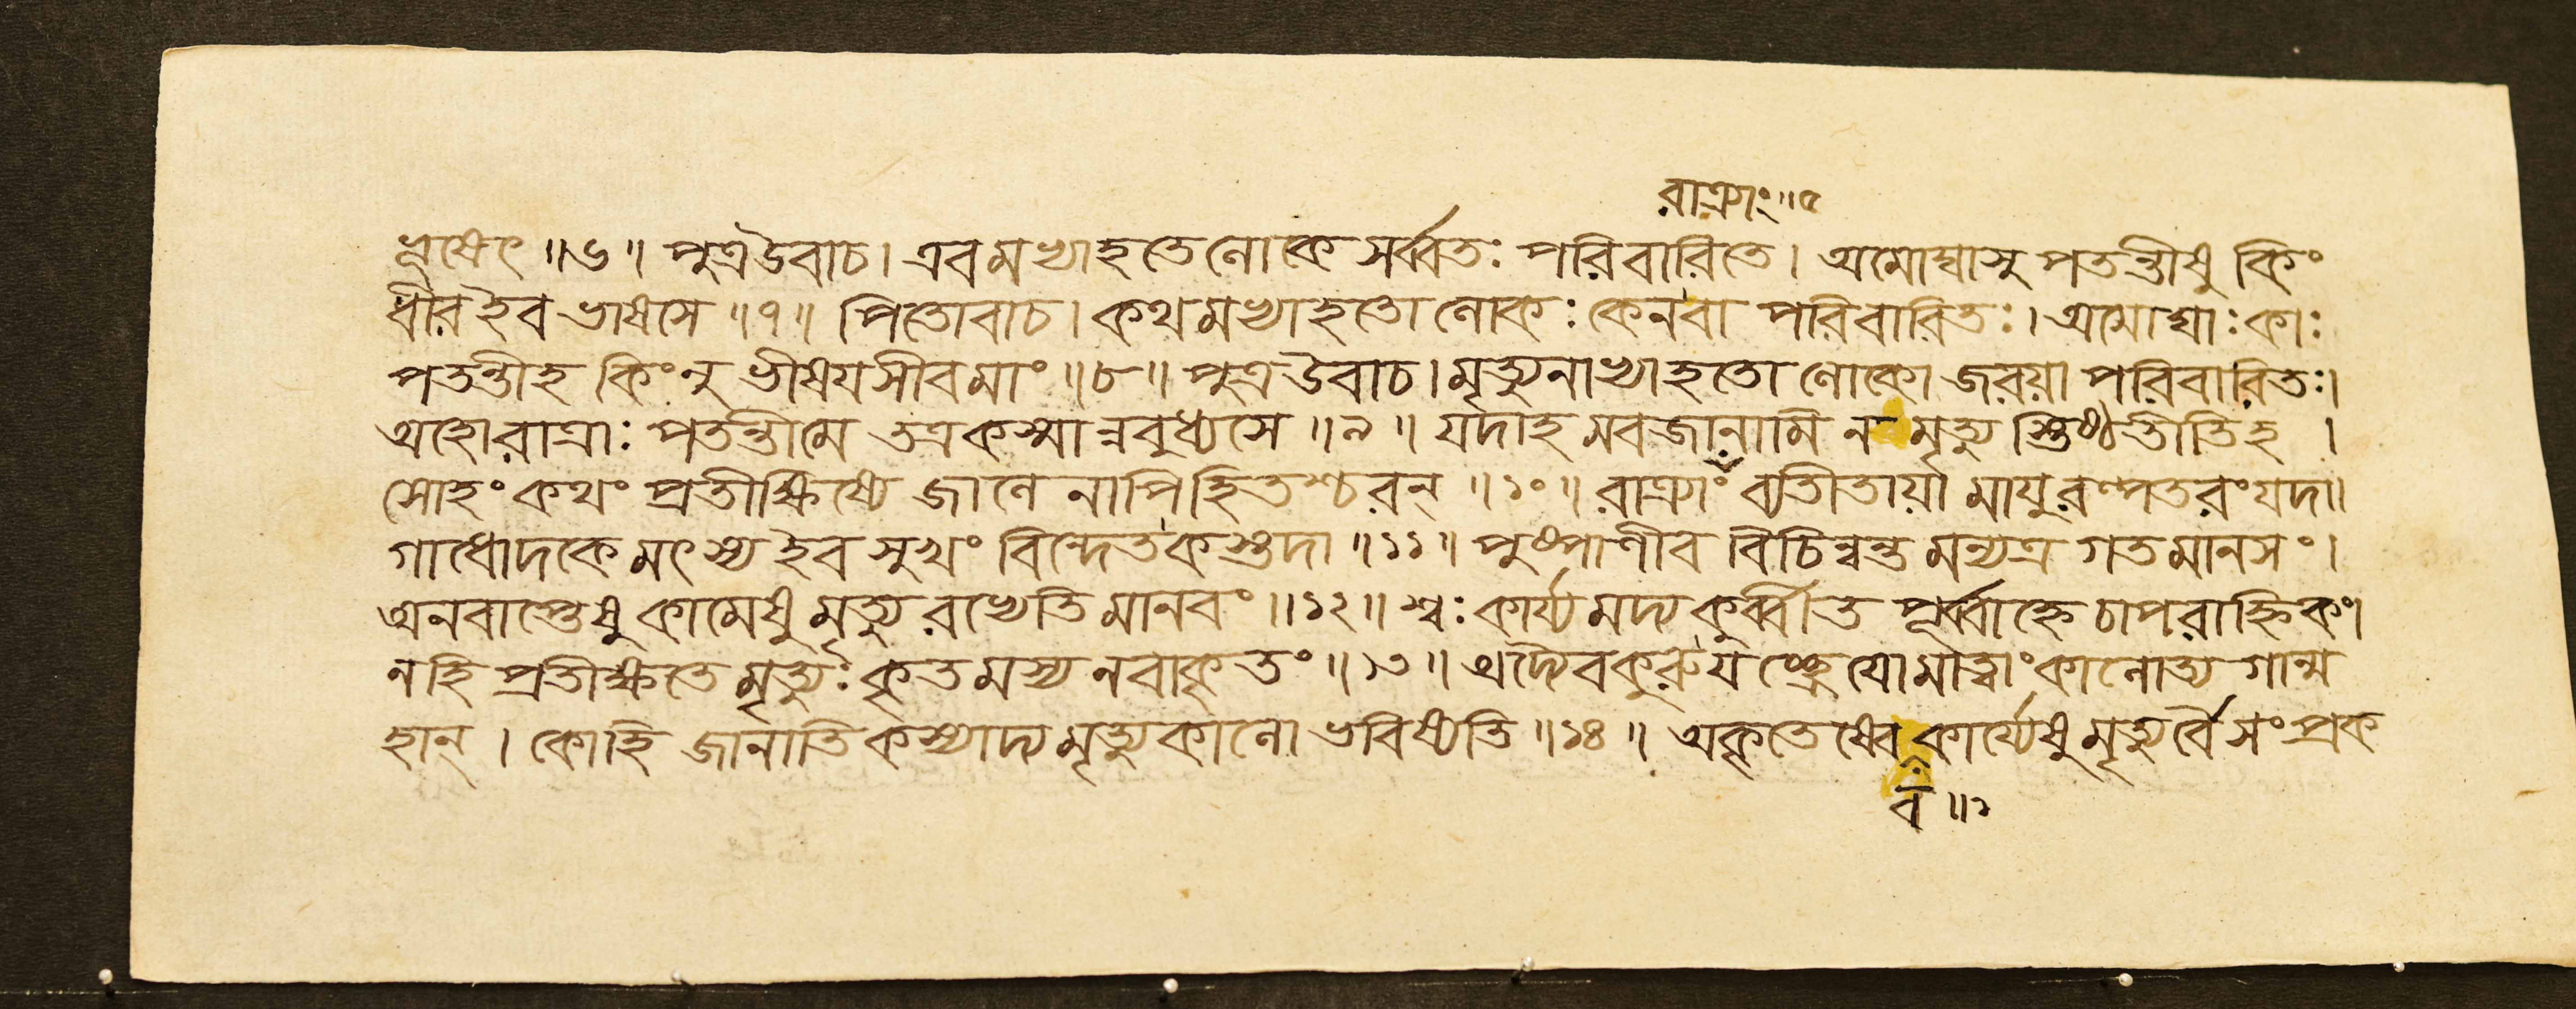 রাত্র্যাং॥৫
র্বুভূষেৎ ॥৬॥ পুত্রউবাচ। এবমভ্যাহতেলোকে সর্ব্বতঃ পরিবারিতে। অমোঘাসু পতন্তীষু কিং
ধীরইব ভাষসে ॥৭॥ পিতোবাচ। কথমভ্যাহতো লোকঃ কেনবা পরিবারিতঃ। অমোঘাঃ কাঃ
পতন্তীহ কিংনু ভীষয়সীবমাং ॥৮॥ পুত্রউবাচ। মৃত্যুনাভ্যাহতো লোকো জরয়া পরিবারিতঃ।
অহোরাত্রাঃ পতন্তীমে তত্রকস্মান্নবুধ্যসে ॥৯॥ যদাহমবজানামি ন মৃত্যুস্তিষ্ঠতীতিহ ।
সোহং কথং প্রতীক্ষিষ্যে জালেনাপিহিতশ্চরন্ ॥১০॥ রাত্র্যাং ব্যতীতায়া মায়ুরল্পতরংযদা॥
গাধোদকে মৎস্য ইব সুখং বিন্দেতকস্তদা ॥১১॥ পুষ্পাণীব বিচিন্বন্ত মন্যত্র গতমানসং।
অনবাপ্তেষু কামেষু মৃত্যুরভ্যেতি মানবং ॥১২॥ শ্বঃ কার্য্যমদ্য কুর্ব্বীত পূর্ব্বাহ্নে চাপরাহ্নিকং।
নহি প্রতীক্ষতে মৃত্যুঃ কৃতমস্য নবাকৃতং ॥১৩॥ অদ্যৈবকুরুযচ্ছ্রেয়োমাত্বাং কালোত্যগান্ম
হান্ । কোহি জানাতি কস্যাদ্য মৃত্যুকালো ভবিষ্যতি ॥১৪॥ অকৃতেষ্বেব কার্য্যেষু মৃত্যুর্বৈসংপ্রক
ব ॥১